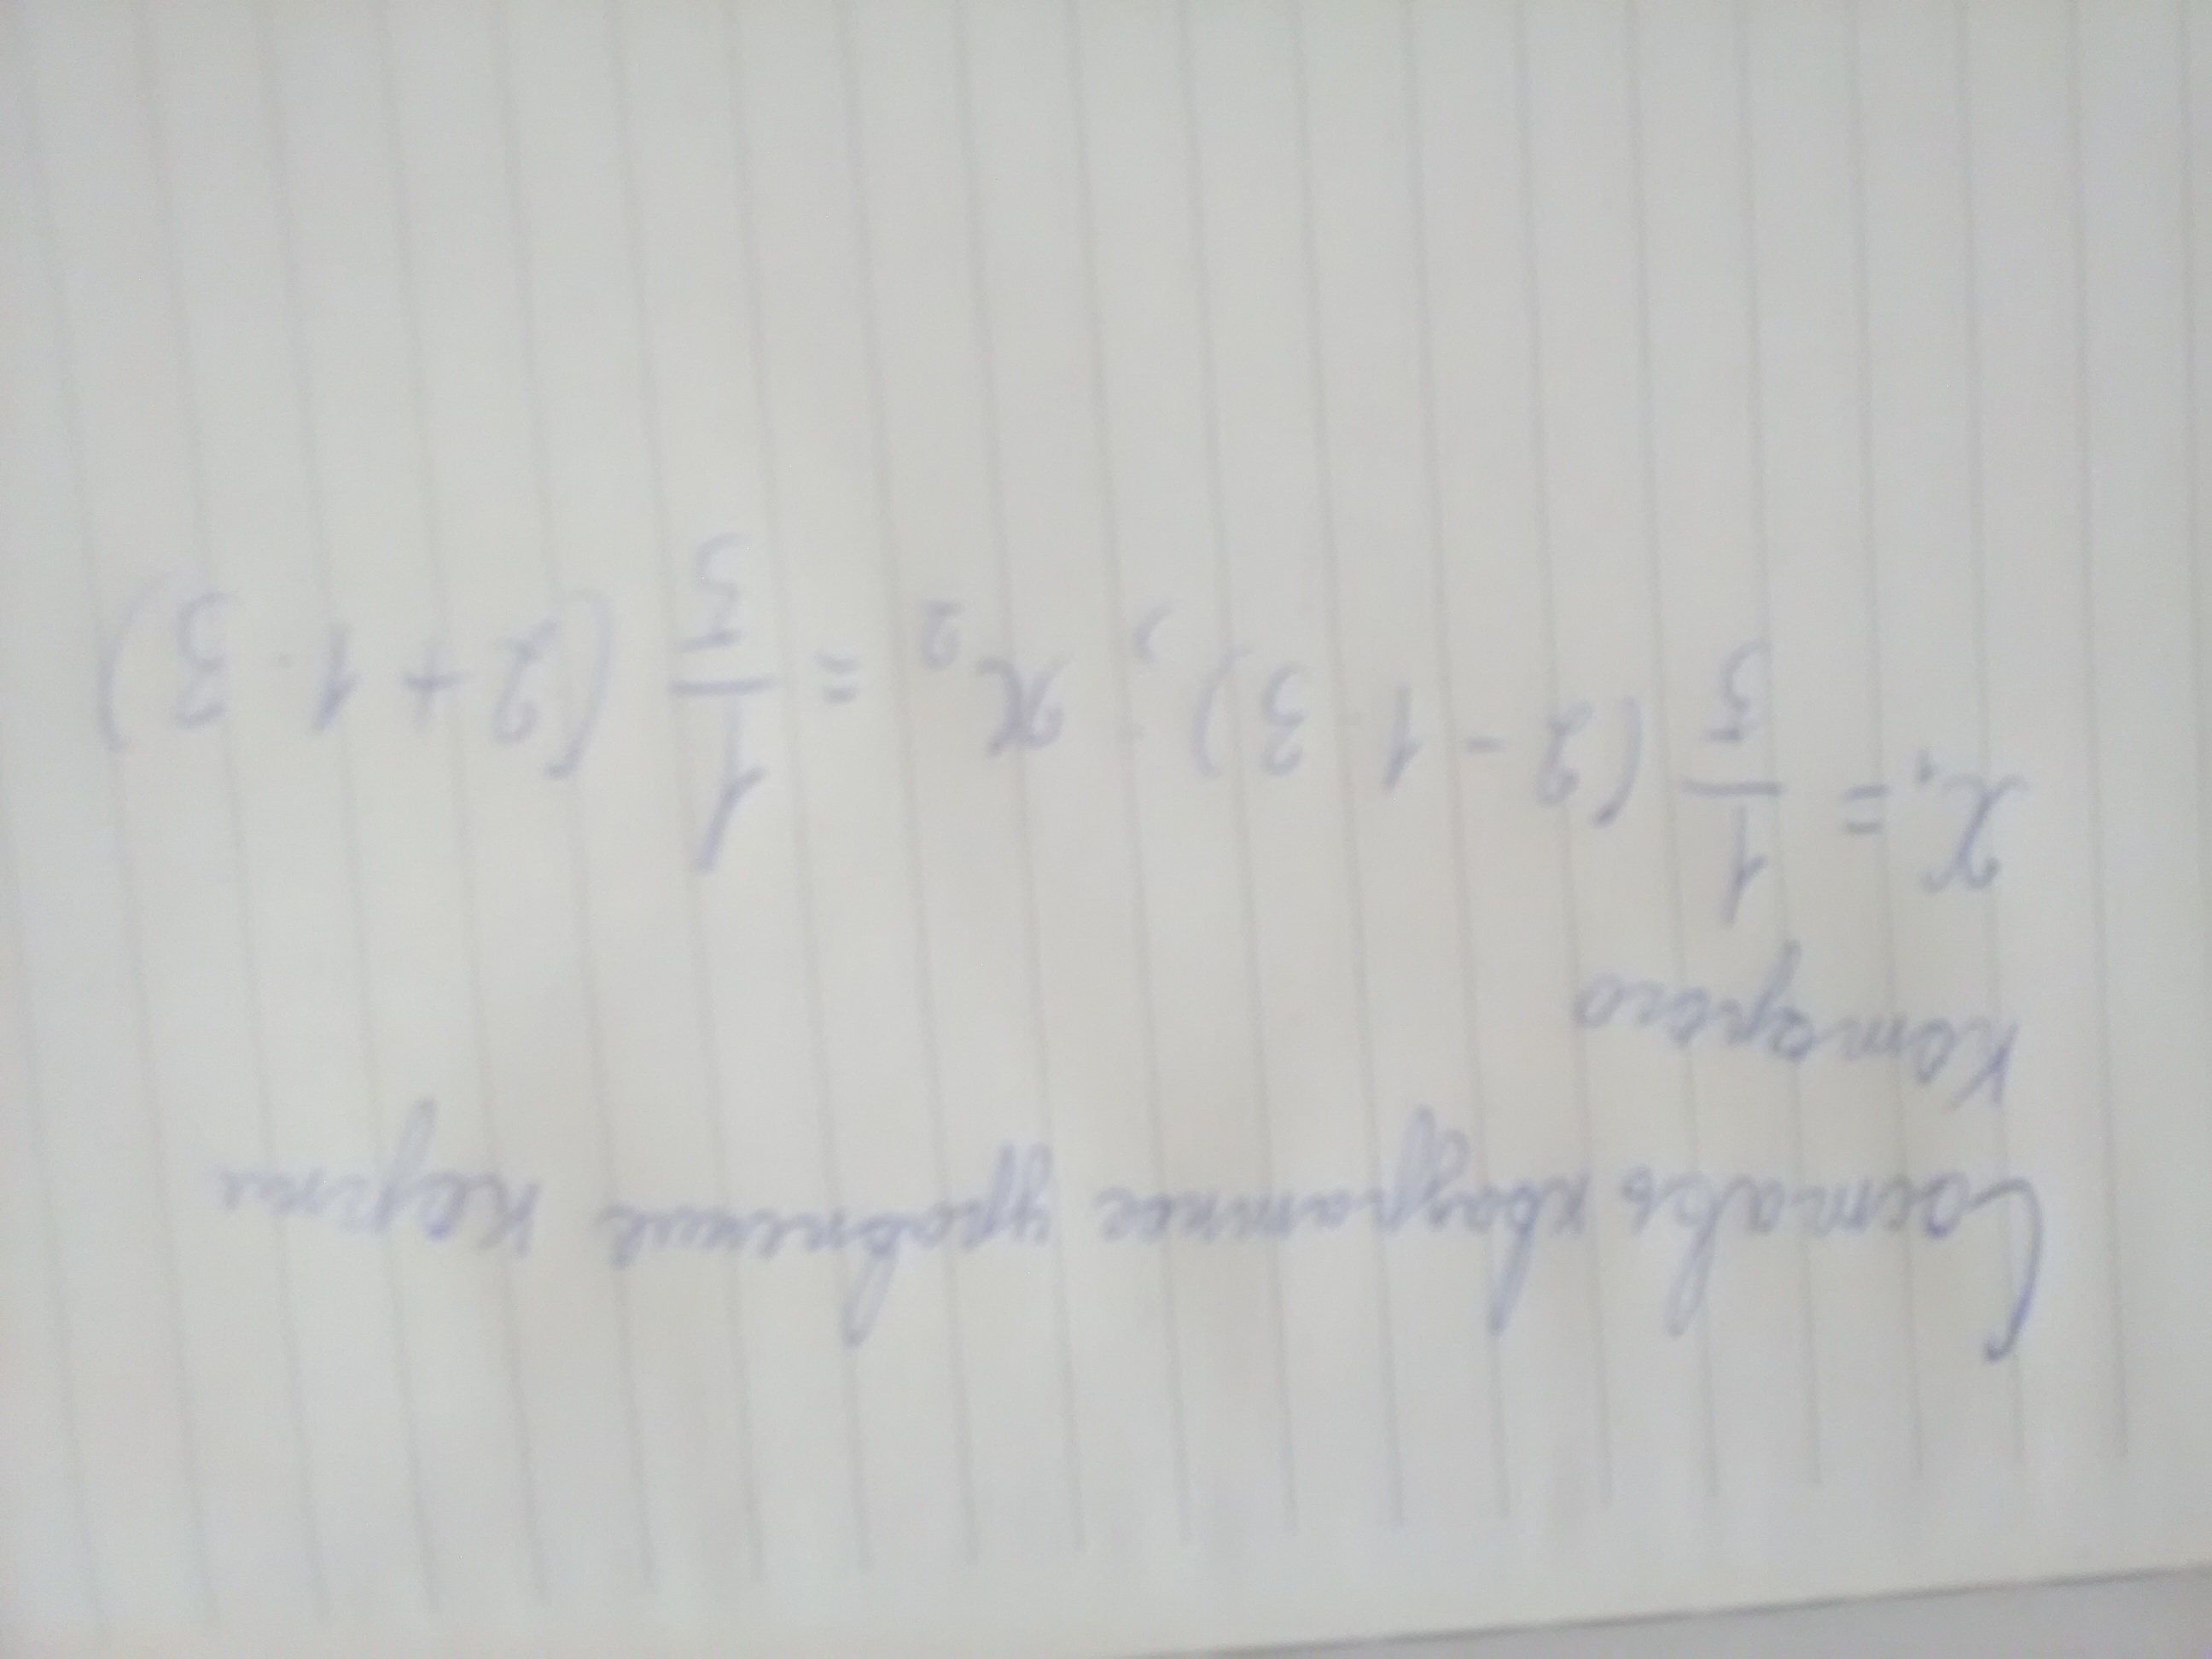 Составь квадратное уравнение корни
которого
x₁ = 1/5 (2 - 1 · 3); x₂ = 1/5 (2 + 1 · 3)